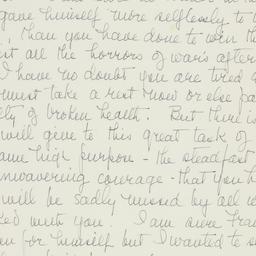 gave himself more selflessly to
than you have done to win th
all the horrors of war's after
I have no doubt you are tired
must take a rest now or else pa
of broken health. But there i
will give to this great task of
same high purpose - the steadfast
unwavering courage - that you h
will be sadly missed by all w
ked with you. I am sure Fra
for himself but I wanted to s